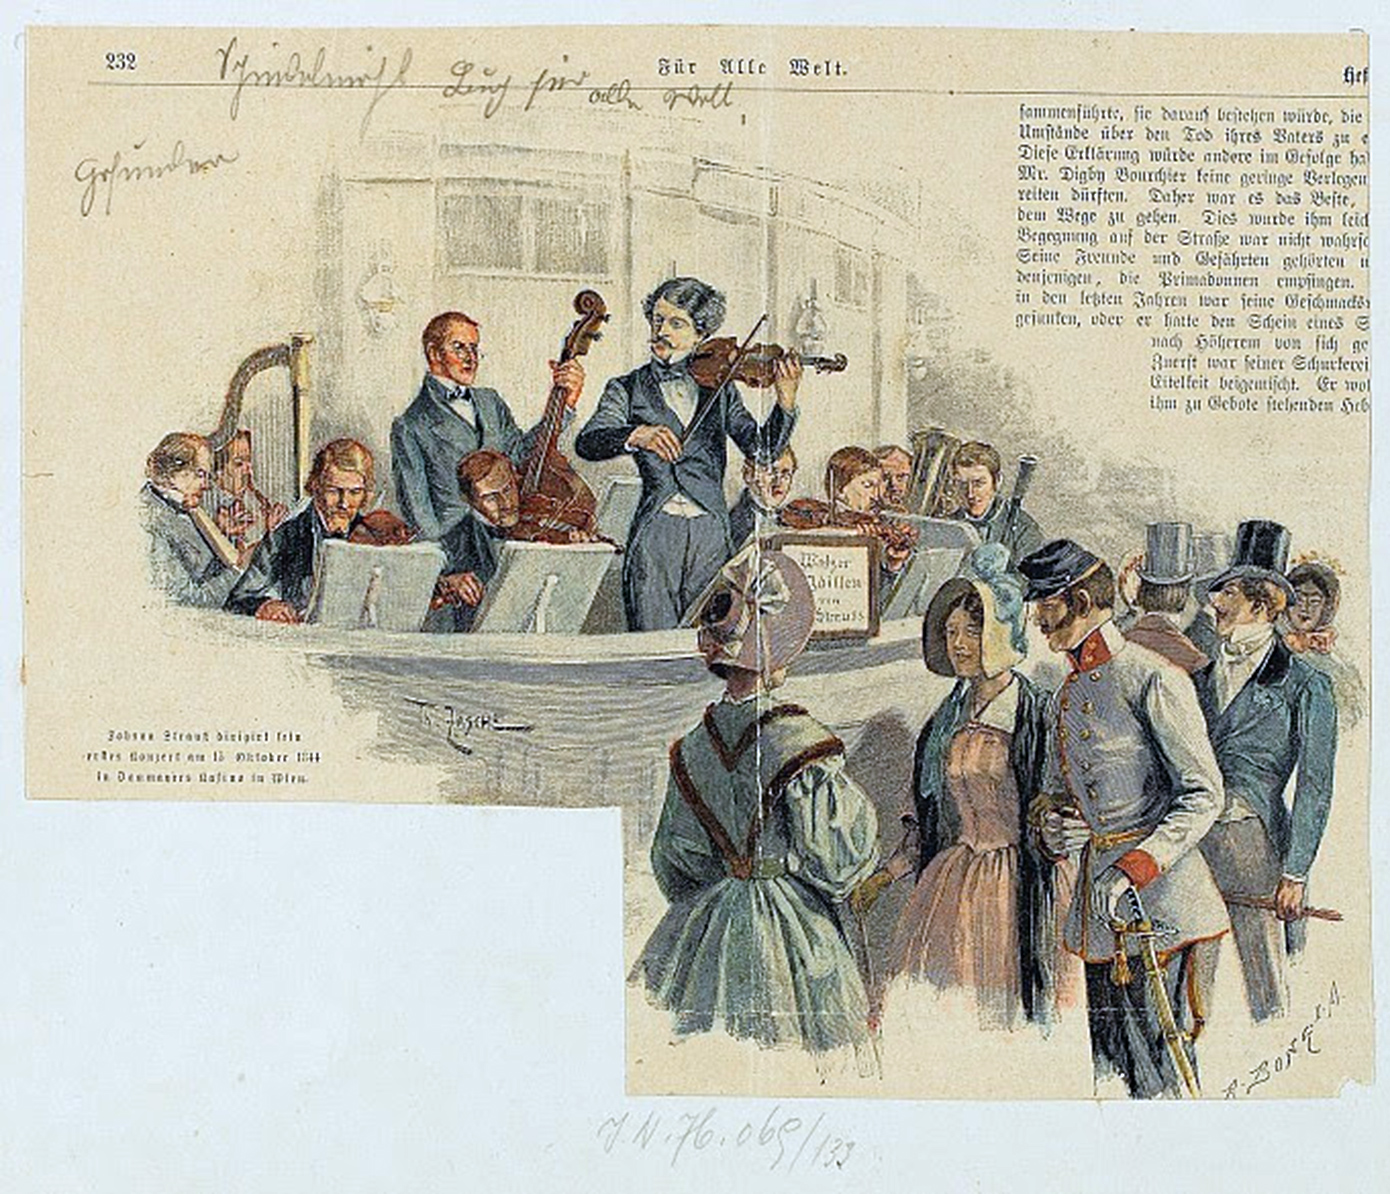 232
Für Alle Welt.
Hef
Buch für alle Welt
sammenführte, sie darauf bestehen würde, die
Umstände über den Tod ihres Vaters zu e
Diese Erklärung würde andere im Gefolge ha
Mr. Digby Bourchier keine geringe Verlegen
reiten dürften. Daher war es das Beste,
dem Wege zu gehen. Dies wurde ihm leic
Begegnung auf der Straße war nicht wahrsc
Seine Freunde und Gefährten gehörten
denjenigen, die Primadonnen empfingen.
in den letzten Jahren war seine Geschmacks
gesunken, oder er hatte den Schein eines S
nach Höherem von sich ge
Zuerst war seiner Schurkerei
Eitelkeit beigemischt. Er wol
ihm zu Gebote stehenden Heb
Walzer
von
Strauss
Th. Zasche
Johann Strauß dirigirt sein
erstes Konzert am 15 Oktober 1844
in Dommayers Kasino in Wien.
J.N. 76.069/133